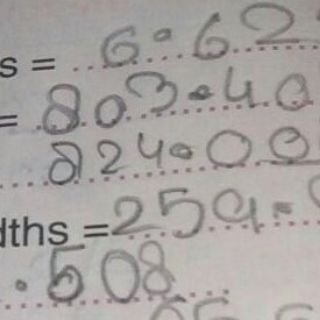 s = 6.62
= 803.40
824.00
dths = 259.
.508